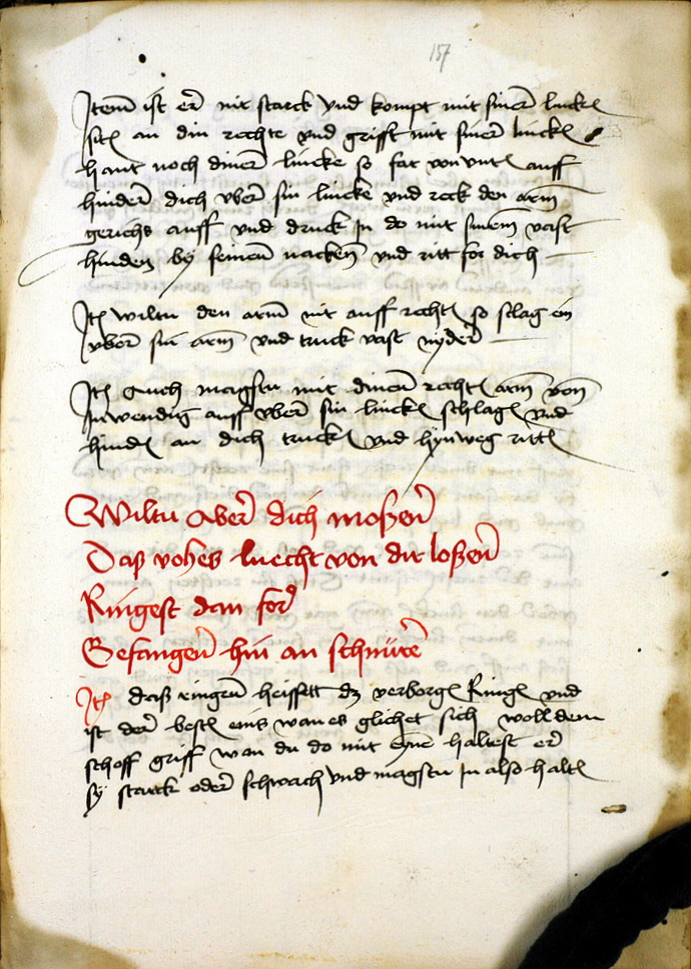 157
Item ist er nit starck vnd kompt mit siner lincken
siten an din rechte vnd grifft mit siner lincken
hant noch diner lincke so far von vnten auff
hinder dich vber sin lincke vnd reck den arm
gerichs auff vnd druck in do mit sinem vast
hinden by seinem nacken vnd ritt for dich
Itē wiltu den arm nit auff rechtē so slag en
vber sin arm vnd truck vast nyder
Itē Auch magstu mit dinem rechtē arm von
Inwendig auff vber sin linckē schlagē vnd
hindē an dich truckē vnd hynweg rittē
Wiltu Aber dich moßen
Daß vohes knecht von dir loßen
Ringest dan for
Gefangen hin an schnüre
Itē daß ringen heissett dz verborgē Ringē vnd
ist der bestē eins wan es glichet sich woll dem
schoff griff wan du do mit eyne haltest er
sy starck oder schwach vnd magstu in also haltē